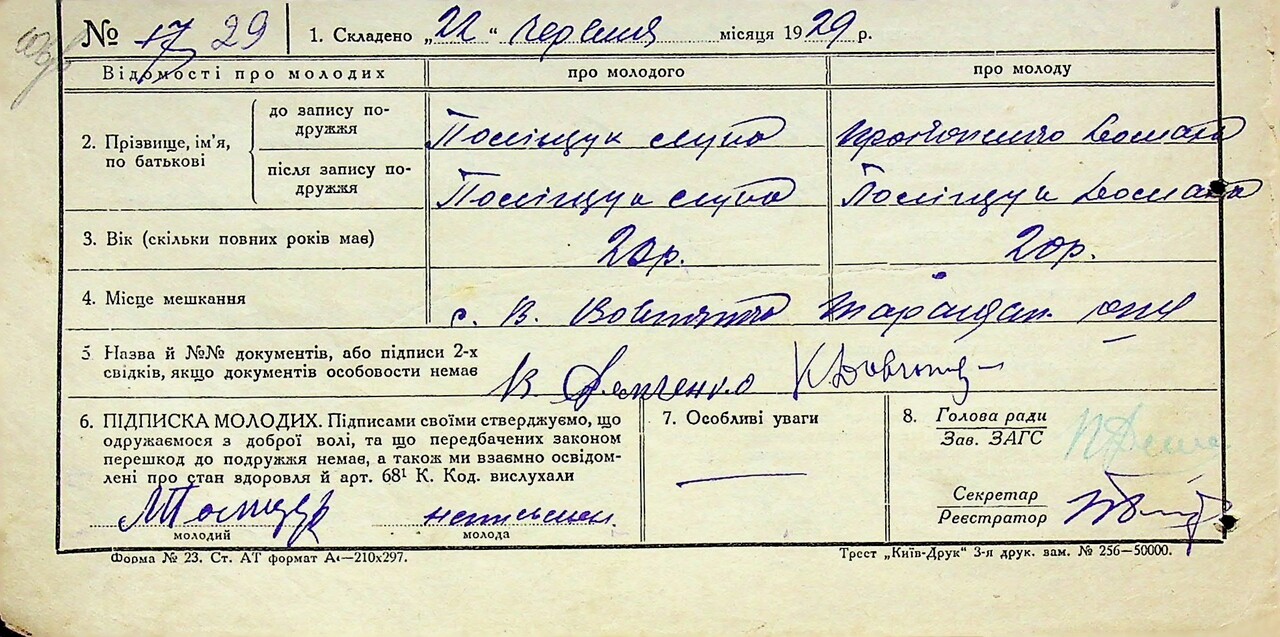 № 17 29
1. Складено „22“ червня місяця 1929 р.
Відомості про молодих
про молодого
про молоду
2. Прізвище, ім'я, по батькові
до запису по-
дружжя
Поліщук
після запису по-
дружжя
Поліщук
Поліщук
3. Вік (скільки повних років має)
20р.
20р.
4. Місце мешкання
с. В.
5 Назва й №№ документів, або підписи 2-х
свідків, якщо документів особовости немає
6. ПІДПИСКА МОЛОДИХ. Підписами своїми стверджуємо, що
одружаємося з доброї волі, та що передбачених законом
перешкод до подружжя немає, а також ми взаємно освідом-
лені про стан здоровля й арт. 68¹ К. Код. вислухали
неписьмен.
молодий
молода
7. Особливі уваги
8. Голова ради
Зав. ЗАГС
Секретар
Реєстратор
Форма № 23. Ст. АТ формат А4—210х297.
Трест „Київ-Друк“ 3-я друк. зам. № 256—50000.